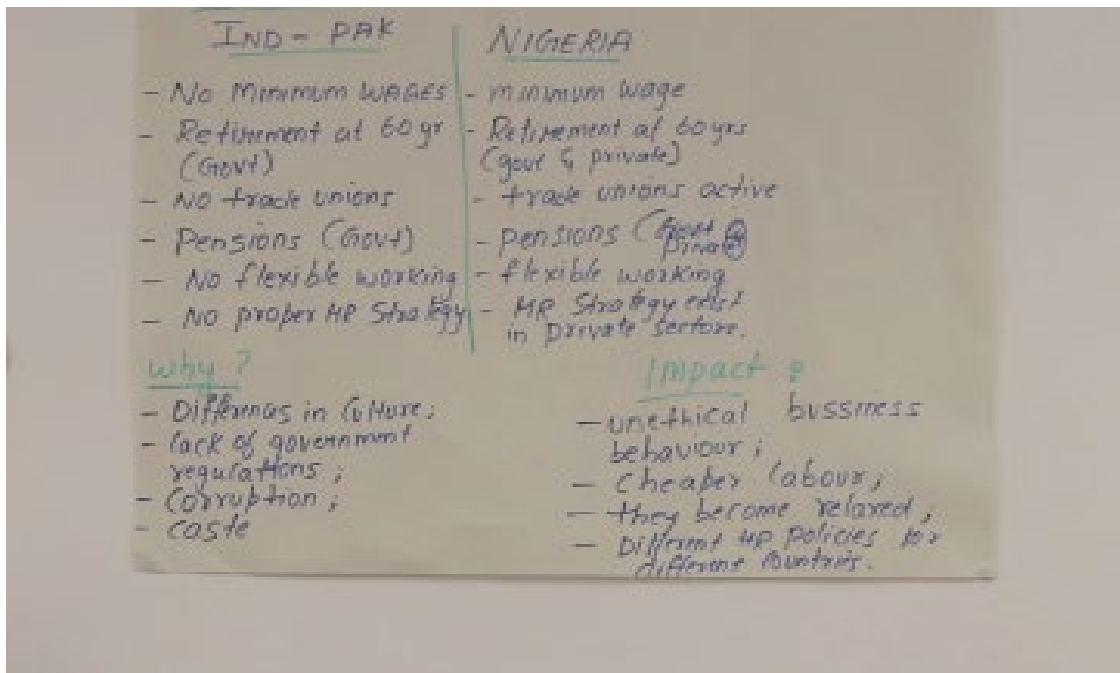 IND - PAK
- No Minimum WAGES
- Retirement at 60 yr
(Govt)
- No trade unions
- Pensions (Govt)
- No flexible working
- No proper HR Strategy
NIGERIA
- minimum wage
- Retirement at 60 yrs
(govt & private)
- trade unions active
- pensions (Govt &
private)
- flexible working
- HR Strategy exist
in private sectore.
why?
- Differences in Culture;
- lack of government
regulations;
- Corruption;
- caste
Impact?
- unethical bussiness
behaviour;
- Cheaper labour;
- they become relaxed;
- Different HR policies for
different Countries.